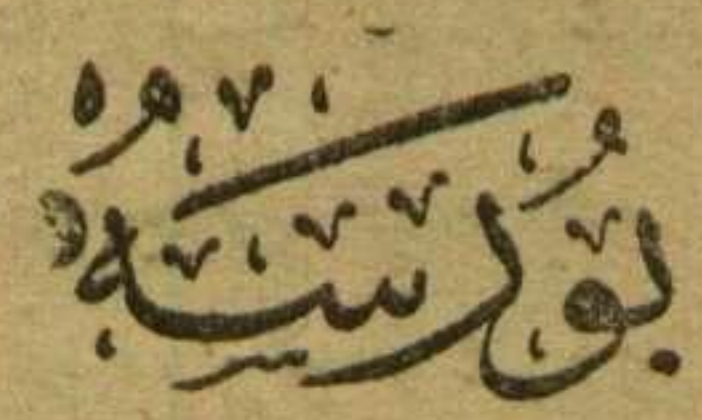 بورسه